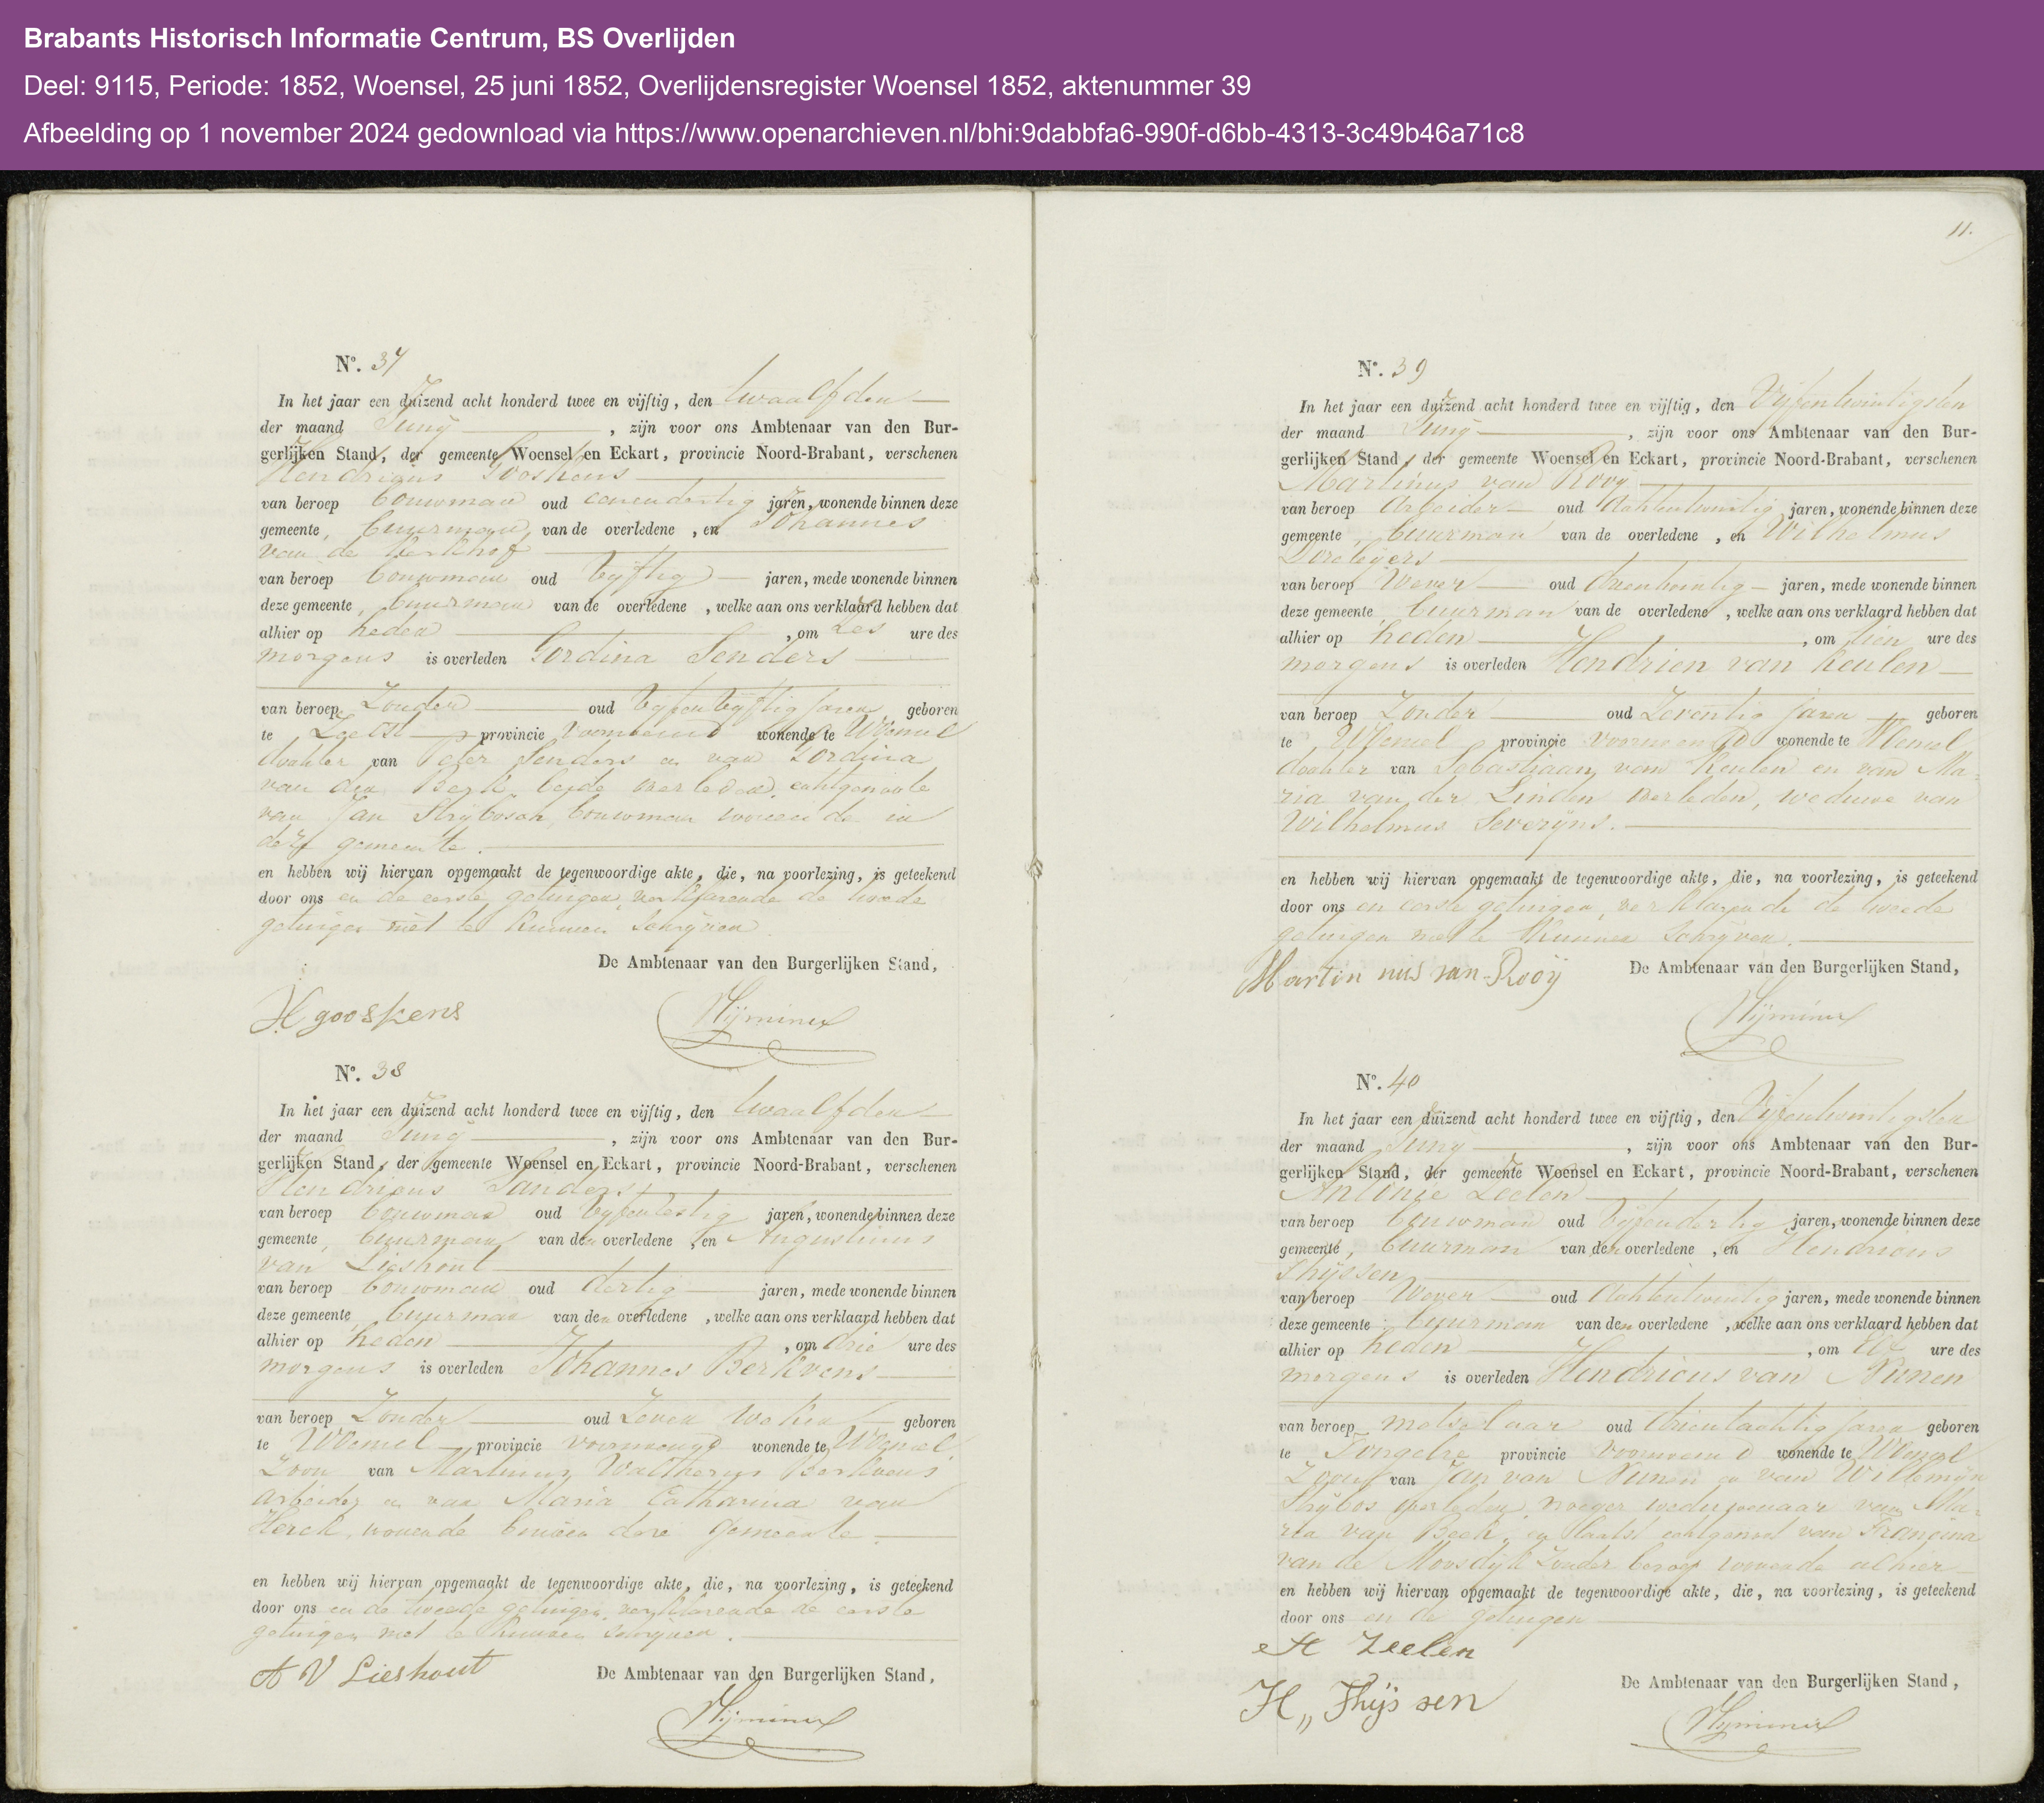 Brabants Historisch Informatie Centrum, BS Overlijden
Deel: 9115, Periode: 1852, Woensel, 25 juni 1852, Overlijdensregister Woensel 1852, aktenummer 39
Afbeelding op 1 november 2024 gedownload via https://www.openarchieven.nl/bhi:9dabbfa6-990f-d6bb-4313-3c49b46a71c8
No. 37
In het jaar een duizend acht honderd twee en vijftig, den twaalfden
der maand Junij, zijn voor ons Ambtenaar van den Bur-
gerlijken Stand, der gemeente Woensel en Eckart, provincie Noord-Brabant, verschenen
Hendricus Gooskens
van beroep bouwman oud eenendertig jaren, wonende binnen deze
gemeente, buurman, van de overledene, en Johannes
van de Kerkhof
van beroep bouwman oud vijftig jaren, mede wonende binnen
deze gemeente, buurman van de overledene, welke aan ons verklaard hebben dat
alhier op heden, om zes ure des
morgens is overleden Gordina Senders
van beroep Zonder oud vijfenvijftig jaren geboren
te Zeelst provincie voornoemd wonende te Woensel
dochter van Peter Senders en van Gordina
van den Berk beide overleden, echtgenoote
van Jan Strijbosch, bouwman wonende in
deze gemeente.
en hebben wij hiervan opgemaakt de tegenwoordige akte, die, na voorlezing, is geteekend
door ons en de eerste getuigen, verklarende de tweede
getuigen niet te kunnen schrijven
De Ambtenaar van den Burgerlijken Stand,
H gooskens
No. 38
In het jaar een duizend acht honderd twee en vijftig, den twaalfden
der maand Junij, zijn voor ons Ambtenaar van den Bur-
gerlijken Stand, der gemeente Woensel en Eckart, provincie Noord-Brabant, verschenen
Hendricus Sanders
van beroep bouwman oud vijfenzestig jaren, wonende binnen deze
gemeente, buurman van den overledene, en Augustinus
van Lieshout
van beroep bouwman oud dertig jaren, mede wonende binnen
deze gemeente, buurman van den overledene, welke aan ons verklaard hebben dat
alhier op heden, om drie ure des
morgens is overleden Johannes Berkvens
van beroep Zonder oud Zeven weken geboren
te Woensel provincie voornoemd wonende te Woensel
Zoon van Martinus Waltherus Berkvens
arbeider en van Maria Catharina van
Herck, wonende binnen deze gemeente.
en hebben wij hiervan opgemaakt de tegenwoordige akte, die, na voorlezing, is geteekend
door ons en de tweede getuigen, verklarende de eerste
getuigen niet te kunnen schrijven.
A V Lieshout
De Ambtenaar van den Burgerlijken Stand,
11.
No. 39
In het jaar een duizend acht honderd twee en vijftig, den Vijfentwintigsten
der maand Junij, zijn voor ons Ambtenaar van den Bur-
gerlijken Stand, der gemeente Woensel en Eckart, provincie Noord-Brabant, verschenen
Martinus van Rooy
van beroep Arbeider oud Achtentwintig jaren, wonende binnen deze
gemeente, buurman van de overledene, en Wilhelmus
van beroep Wever oud jaren, mede wonende binnen
deze gemeente, buurman van de overledene, welke aan ons verklaard hebben dat
alhier op heden, om tien ure des
morgens is overleden Hendrien van Keulen
van beroep Zonder oud Zeventig jaren geboren
te Woensel provincie voornoemd wonende te Woensel
dochter van Sebastiaan van Keulen en van Ma-
ria van der Linden overleden, weduwe van
Wilhelmus Severijns.
en hebben wij hiervan opgemaakt de tegenwoordige akte, die, na voorlezing, is geteekend
door ons en eerste getuigen, verklarende de tweede
getuigen niet te kunnen schrijven.
Martin nus van Rooij
De Ambtenaar van den Burgerlijken Stand,
No. 40
In het jaar een duizend acht honderd twee en vijftig, den Vijfentwintigsten
der maand Junij, zijn voor ons Ambtenaar van den Bur-
gerlijken Stand, der gemeente Woensel en Eckart, provincie Noord-Brabant, verschenen
Antonie Zeelen
van beroep bouwman oud vijfendertig jaren, wonende binnen deze
gemeente, buurman van den overledene, en Hendricus
Thijssen
van beroep Wever oud Achtentwintig jaren, mede wonende binnen
deze gemeente, buurman van den overledene, welke aan ons verklaard hebben dat
alhier op heden, om elf ure des
morgens is overleden Hendricus van Nunen
van beroep metselaar oud drientachtig jaren geboren
te Tongelre provincie voornoemd wonende te Woensel
Zoon van Jan van Nunen en van Willemijn
Strijbos overleden, vroeger weduwenaar van Ma-
ria van Beek, en laatst echtgenoot van Francina
van de Moosdijk Zonder beroep wonende alhier
en hebben wij hiervan opgemaakt de tegenwoordige akte, die, na voorlezing, is geteekend
door ons en de getuigen
A Zeelen
De Ambtenaar van den Burgerlijken Stand,
H,, Thijssen